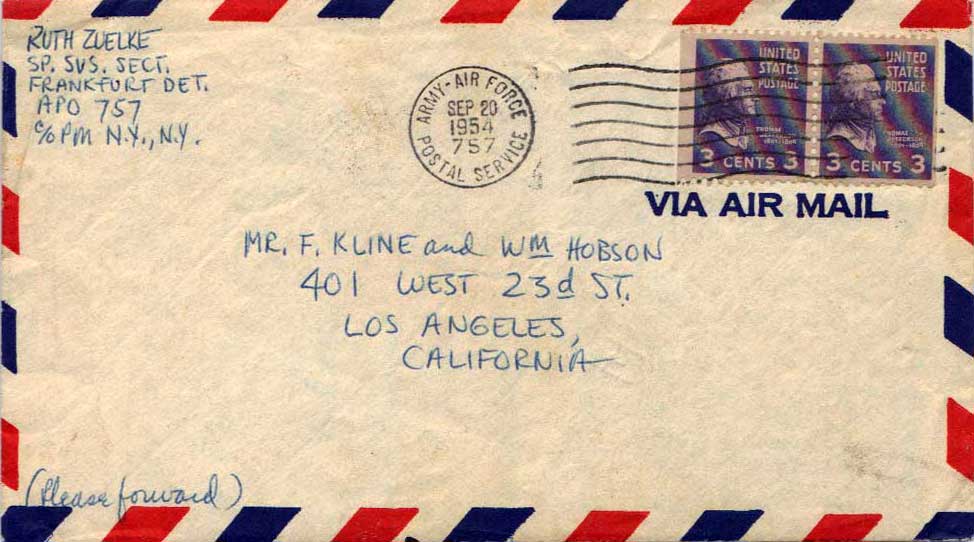 RUTH ZUELKE
SP. SVS. SECT.
FRANKFURT DET.
APO 757
c/o PM N.Y., N.Y.
ARMY-AIR FORCE
SEP 20
1954
757
POSTAL SERVICE
UNITED
STATES
POSTAGE
THOMAS
3 CENTS 3
UNITED
STATES
POSTAGE
THOMAS
JEFFERSON
3 CENTS 3
VIA AIR MAIL
MR. F. KLINE and WM HOBSON
401 WEST 23d ST.
LOS ANGELES,
CALIFORNIA
(Please forward)